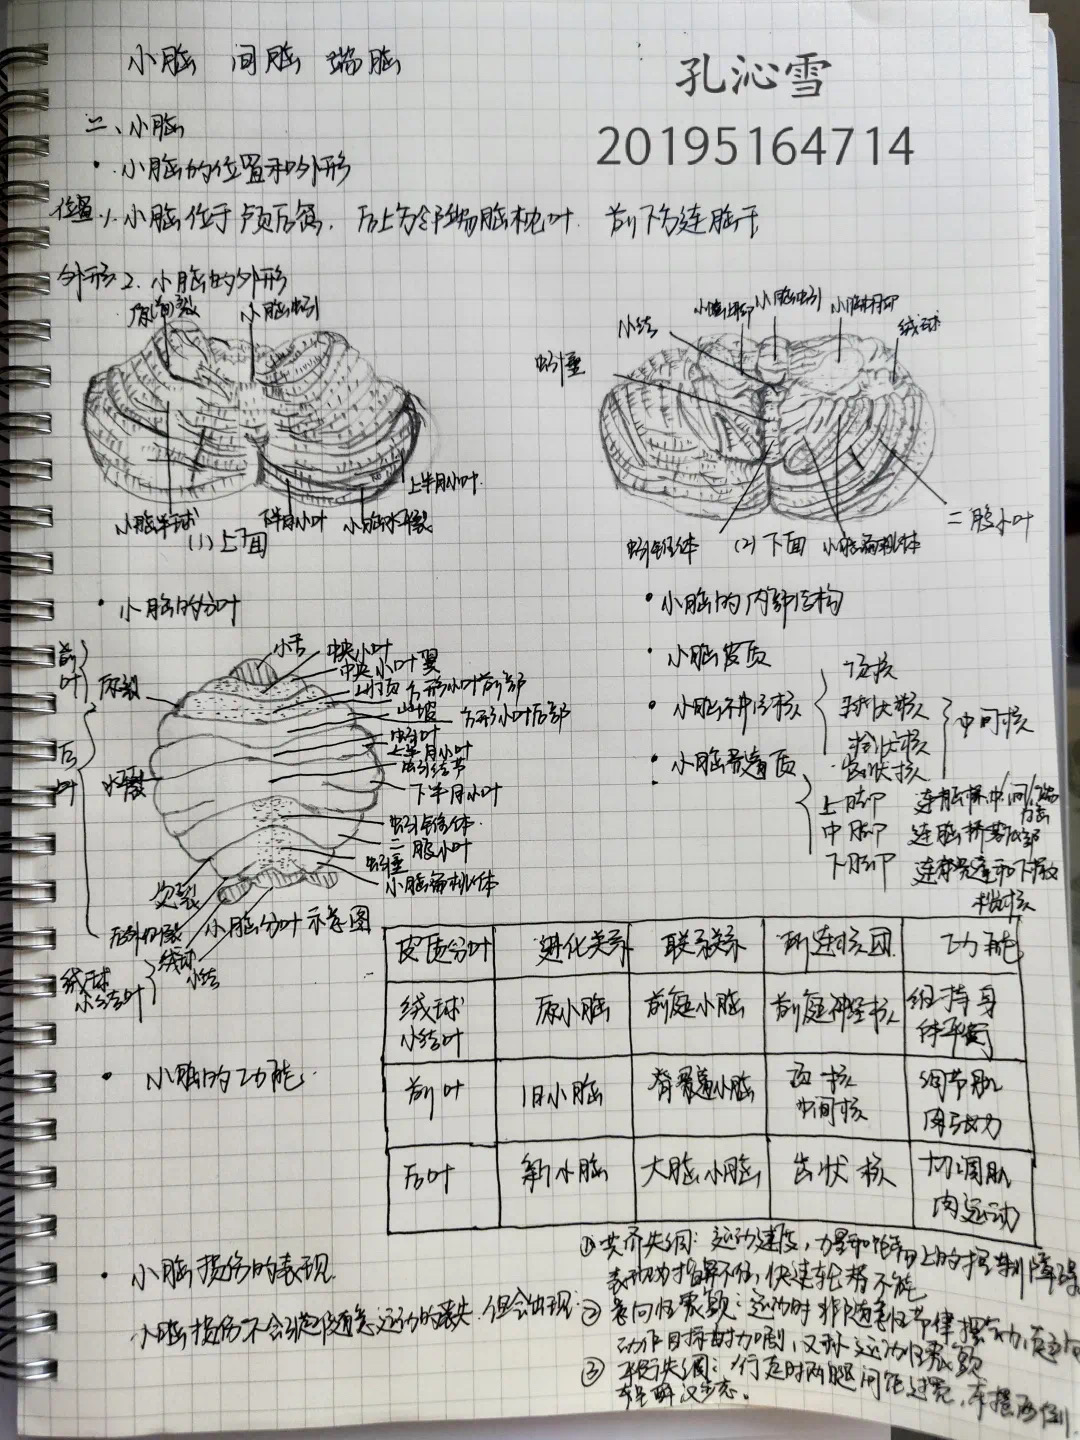 小脑 间脑 端脑
孔沁雪
20195164714
二、小脑
· 小脑的位置和外形
位置 1. 小脑位于颅后窝. 后上方邻端脑枕叶. 前下方连脑干
外形 2. 小脑的外形
原裂
小脑蚓
小脑半球
下半月小叶
小脑水平裂
上半月小叶
(1) 上面
蚓垂
小结
小脑上脚
小脑蚓
小脑中脚
绒球
蚓锥体
(2) 下面
小脑扁桃体
二腹小叶
· 小脑的分叶
前叶
原裂
后叶
水平裂
小舌
中央小叶
中央小叶翼
山顶
方形小叶前部
山坡
方形小叶后部
蚓叶
上半月小叶
蚓结节
下半月小叶
蚓锥体
二腹小叶
蚓垂
小脑扁桃体
次裂
后外侧裂
绒球
小结
绒球小结叶
小脑分叶示意图
· 小脑的内部结构
· 小脑皮质
· 小脑神经核
顶核
球状核
栓状核
齿状核
中间核
· 小脑髓质
上脚 连
中脚 连脑桥基底部
下脚 连
皮质分叶 进化关系 联系关系 所连核团 功能
绒球小结叶 原小脑 前庭小脑 前庭神经核 维持身体平衡
前叶 旧小脑 脊髓小脑 顶核 中间核 调节肌肉张力
后叶 新小脑 大脑小脑 齿状核 协调肌肉运动
· 小脑的功能.
· 小脑损伤的表现.
小脑损伤不会引起随意运动的丧失. 但会出现:
① 共济失调: 运动速度, 力量和距离上的控制障碍
表现为指鼻不准, 快速轮替不能
② 意向性震颤: 运动时非随意性节律摆动,
动作目标时加剧, 又称运动性震颤
③ 平衡失调: 行走时两腿间距过宽, 东摇西倒.
呈醉汉步态.